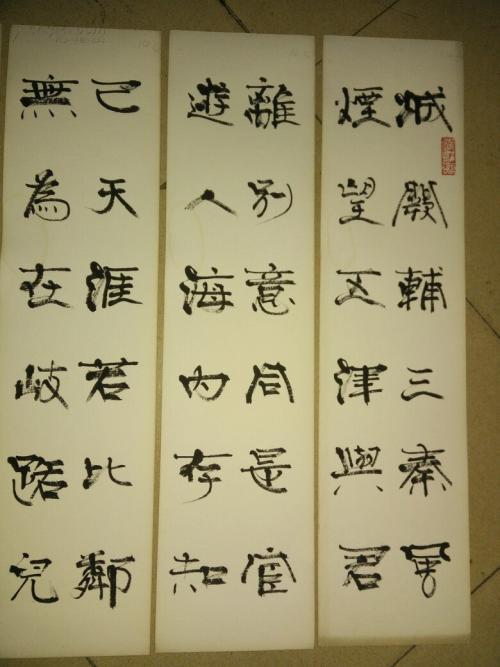 城闕輔三秦風
煙望五津與君
離別意同是宦
遊人海內存知
己天涯若比鄰
無為在岐路兒